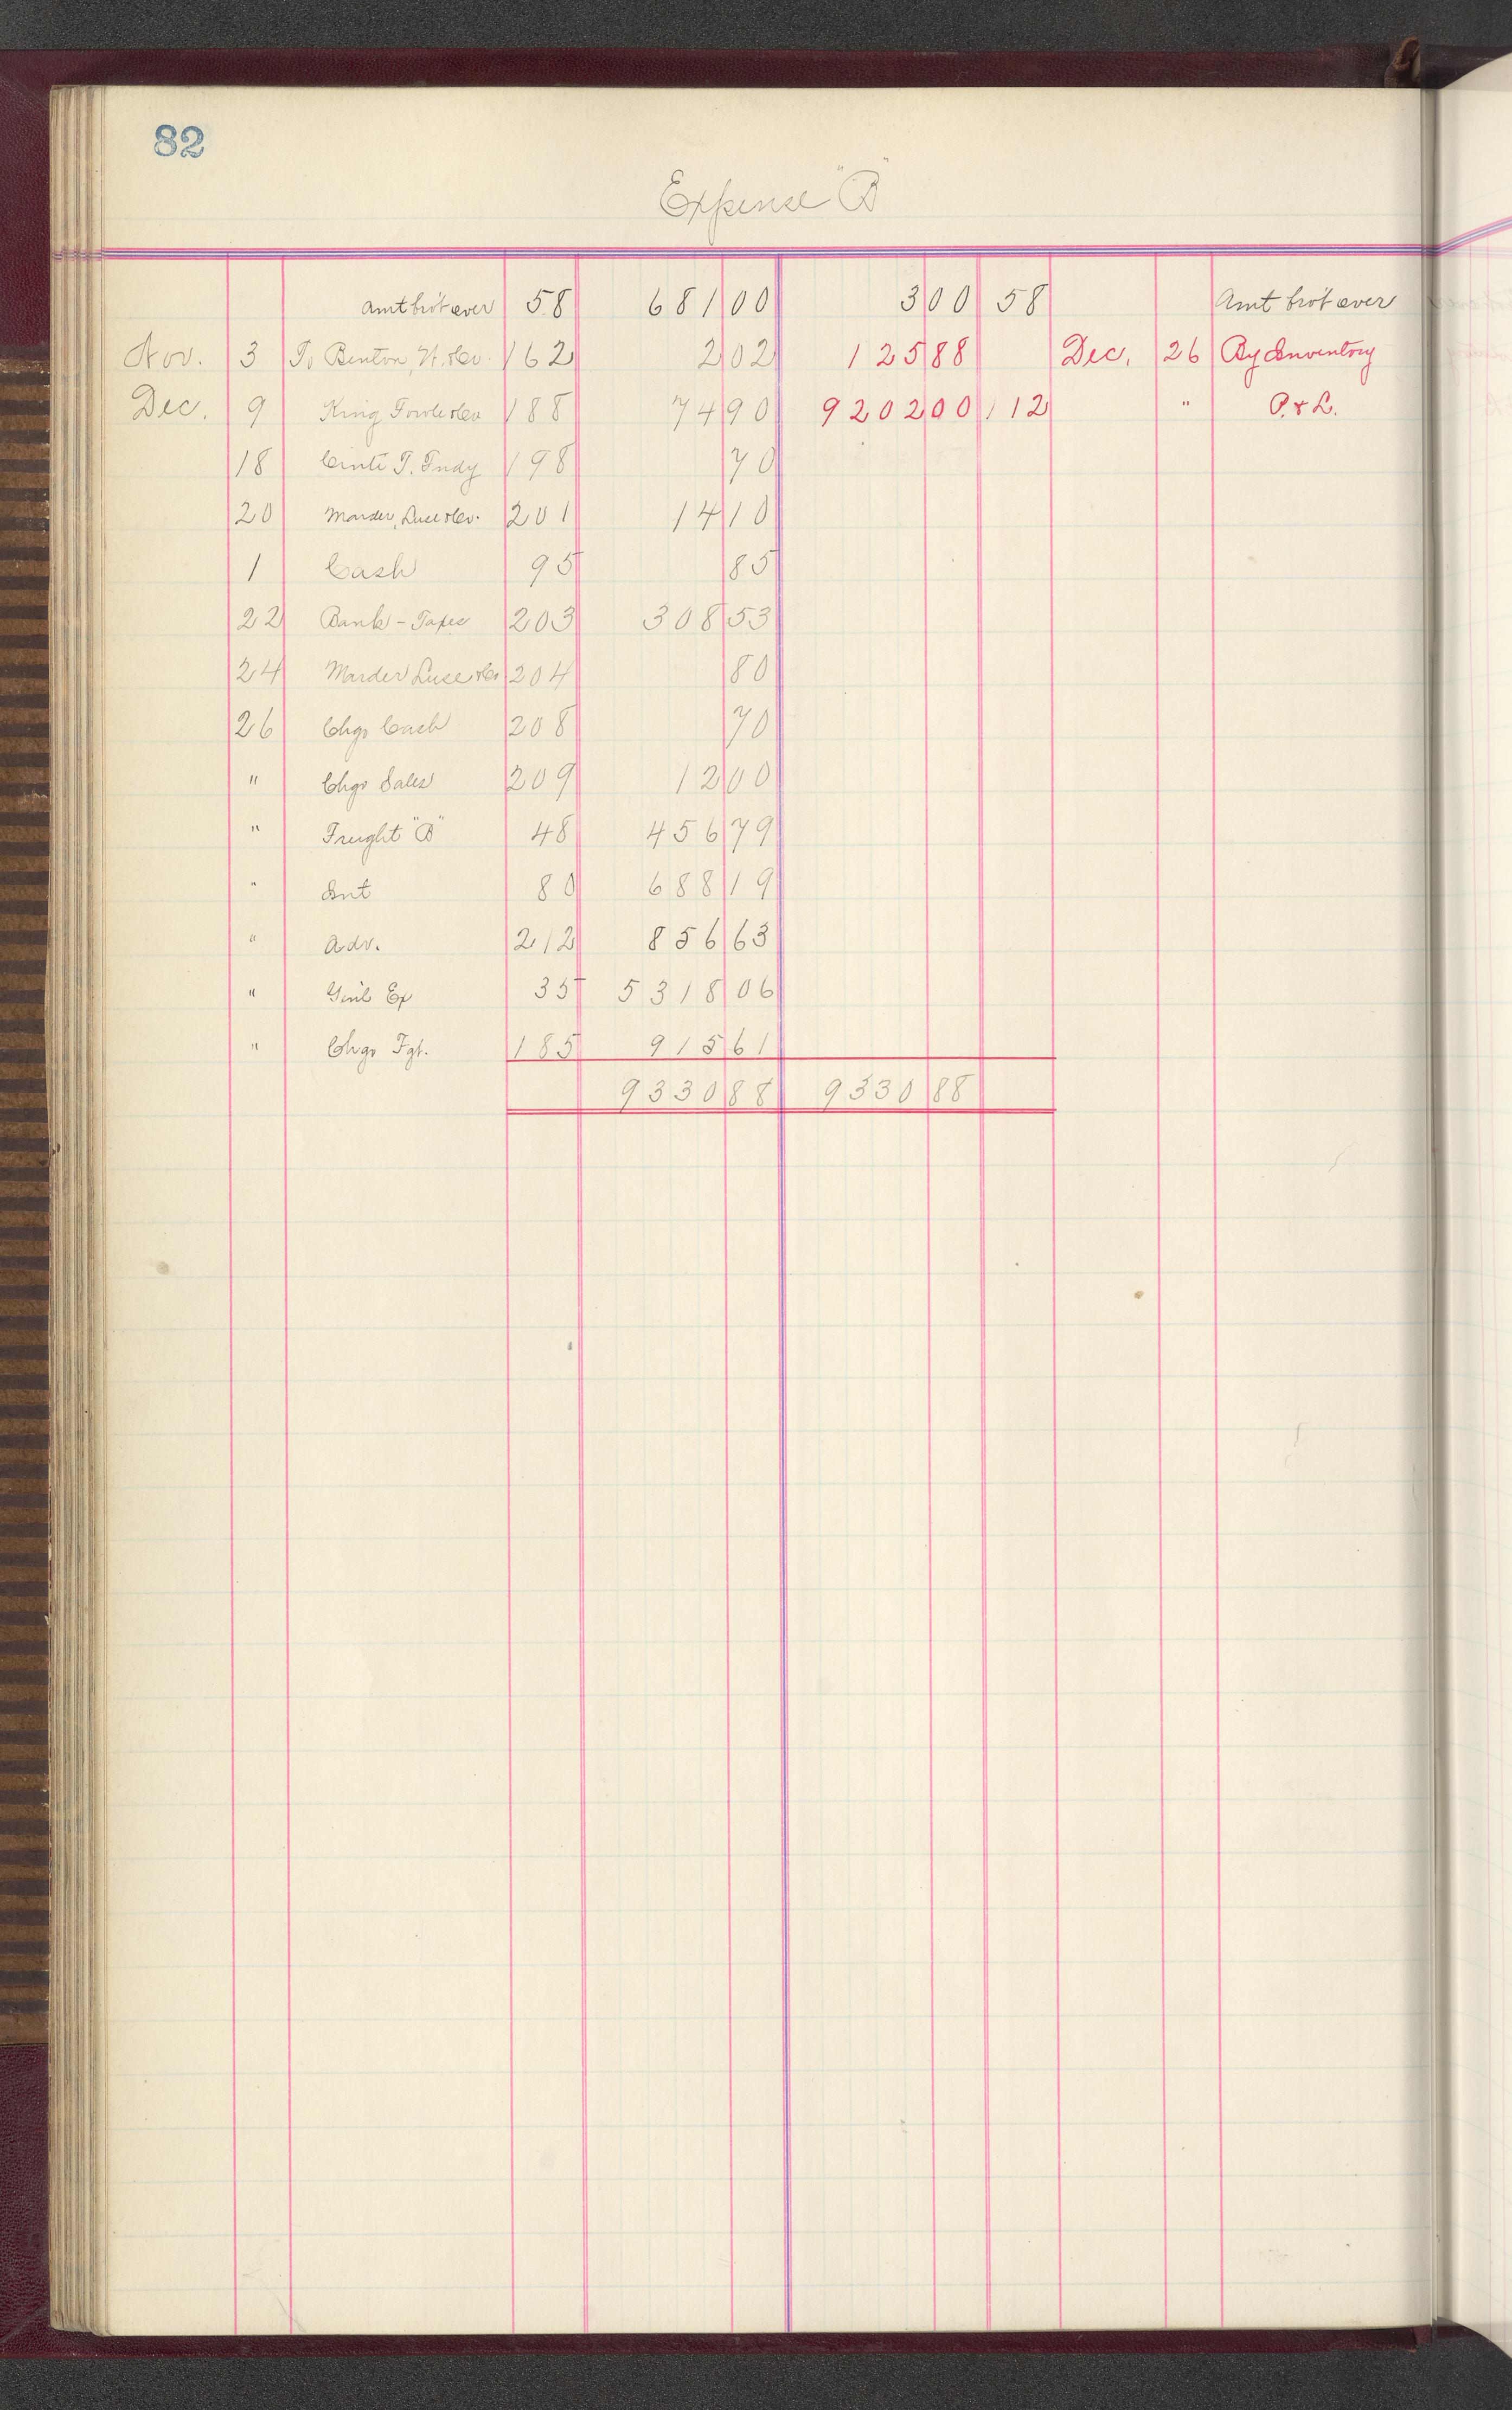 82
Expense "B"
Amt bro't over 58 681 00 3 00 58 Amt bro't over
Nov. 3 To Benton, W. & Co. 162 2 02 125 88 Dec. 26 By Inventory
Dec. 9 King Fowle & Co 188 74 90 9202 00 112 " P. & L.
18 Cinti T. Fndy 198 70
20 Marder, Luse & Co. 201 14 10
1 Cash 95 85
22 Bank - Taxes 203 308 53
24 Marder Luse & Co 204 80
26 Chgo Cash 208 70
" Chgo Sales 209 12 00
" Freight "B" 48 456 79
" Int 80 688 19
" Adv. 212 856 63
" Gen'l Ex 35 5318 06
" Chgo Fgt. 185 915 61
9330 88 9330 88